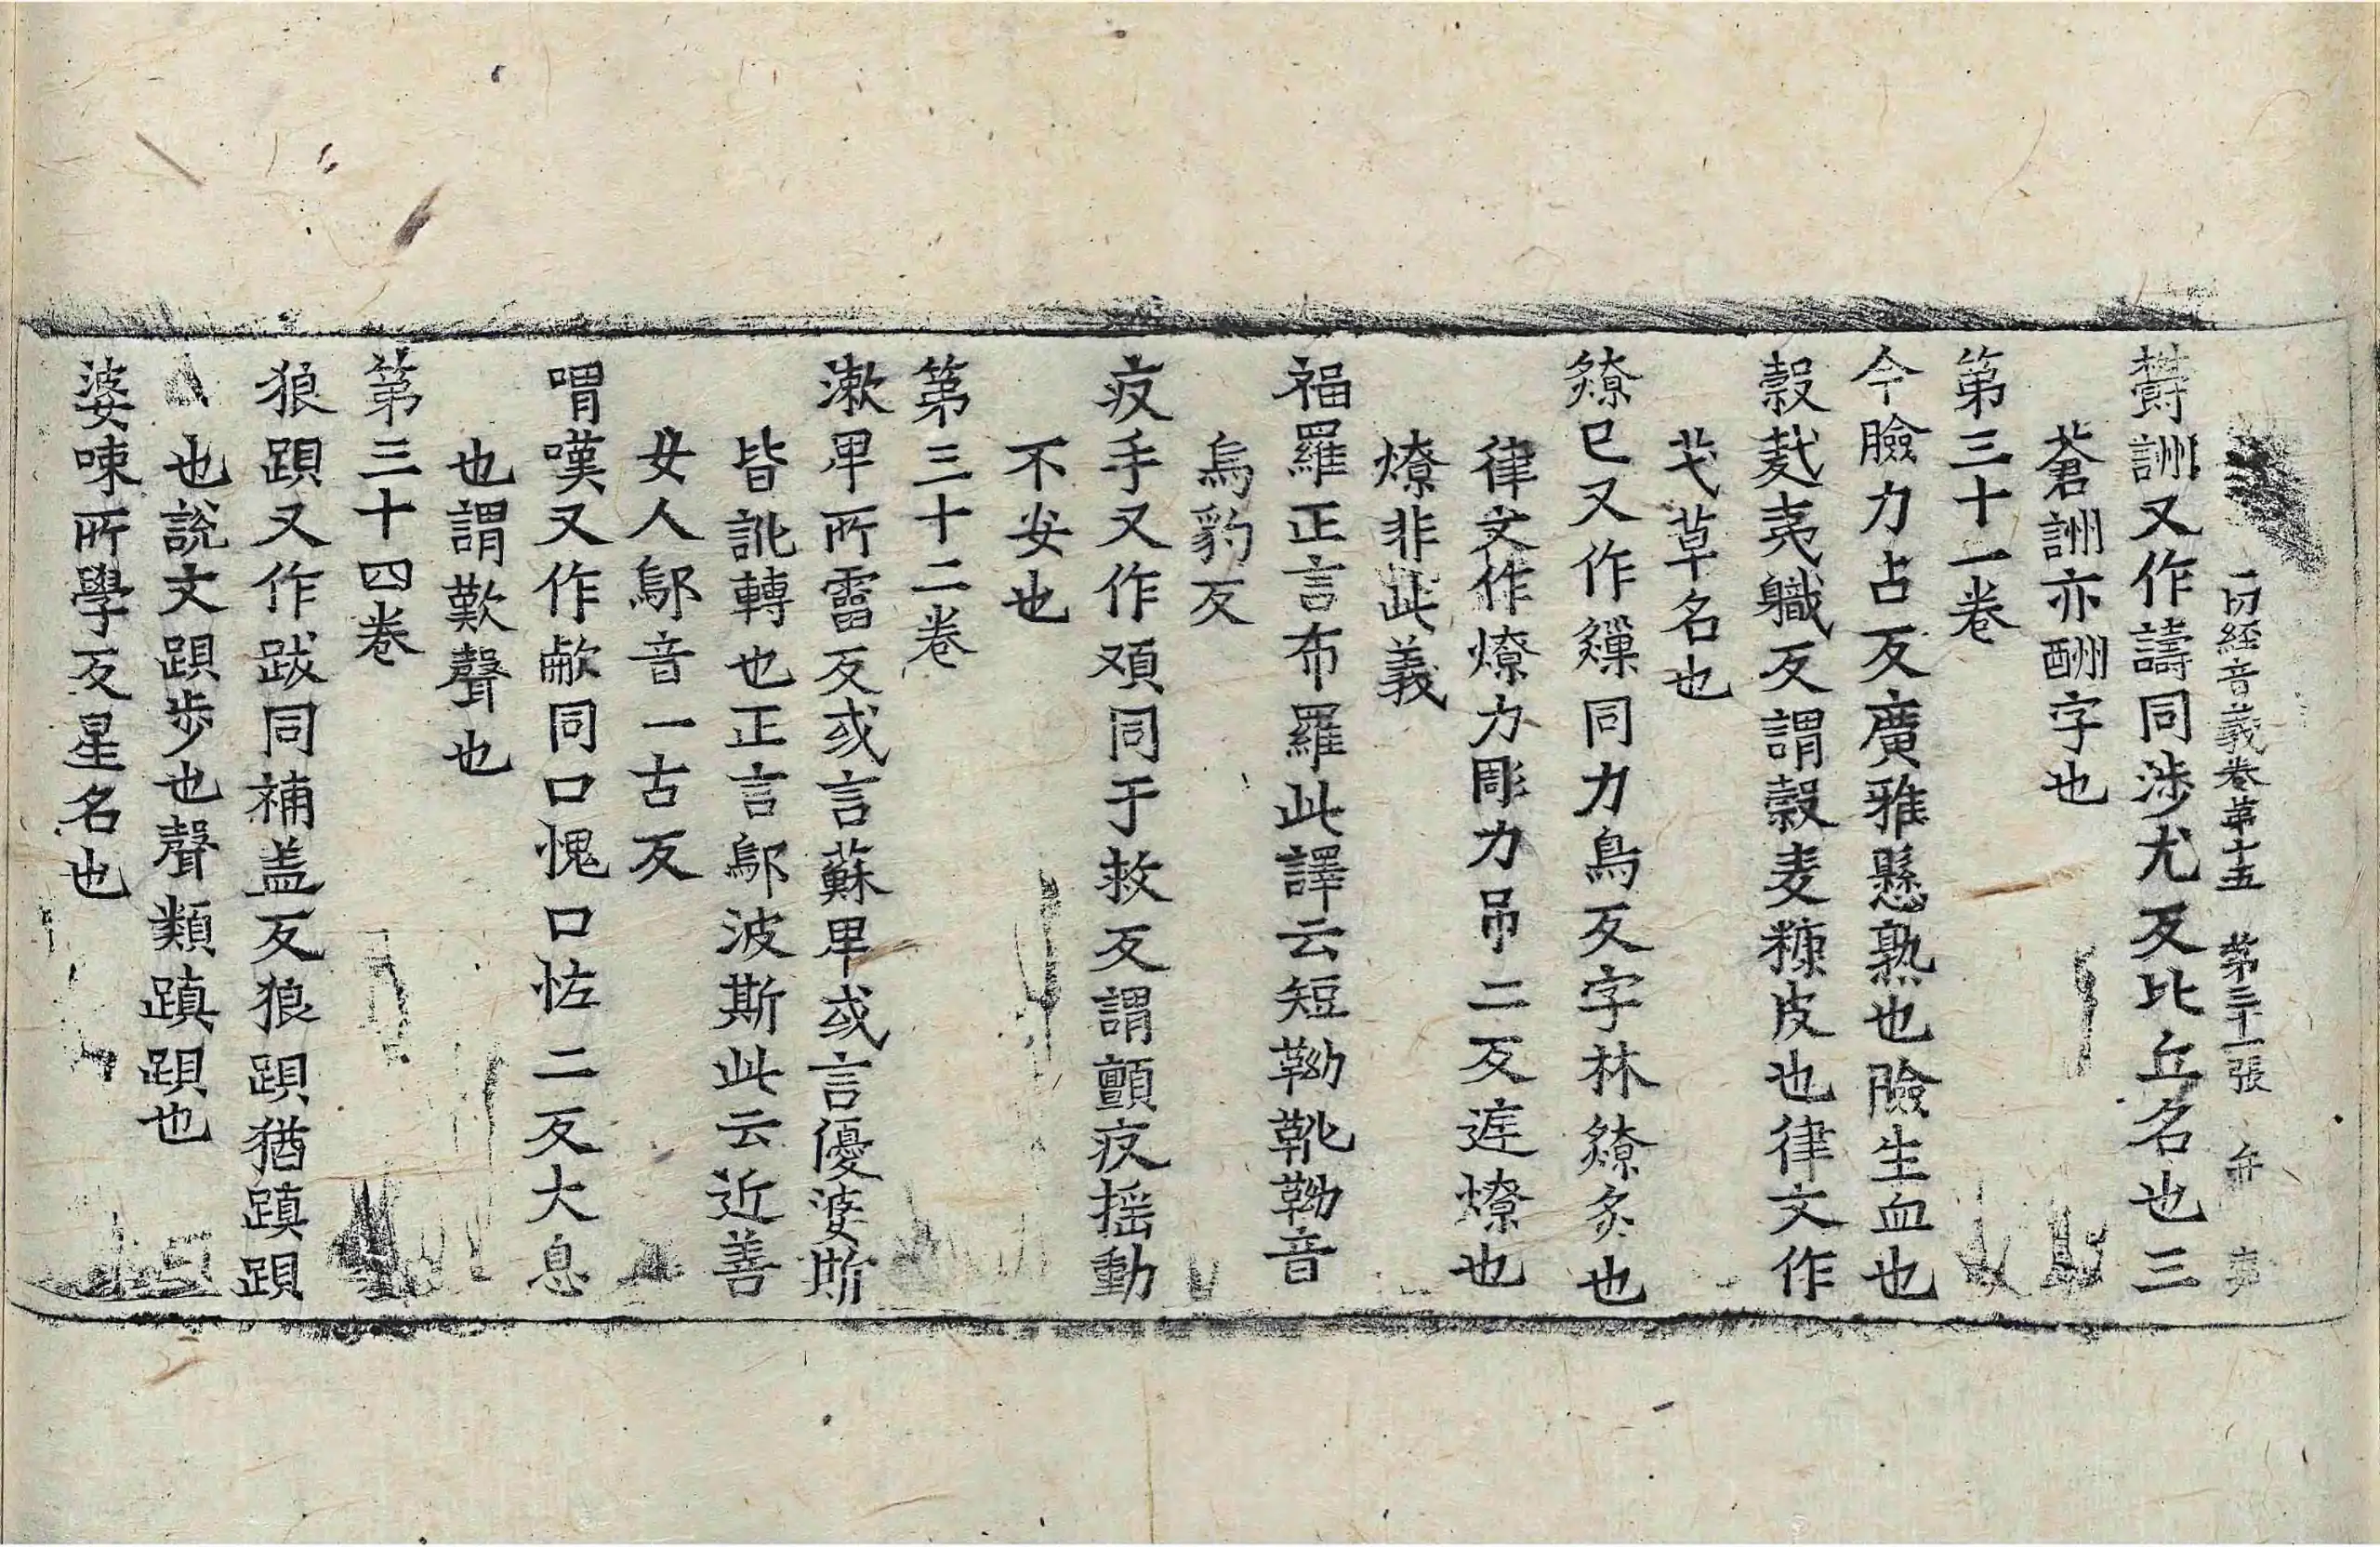 一切経音義卷第十五 第三十一張 弁
欝詶又作譸同涉尤反比丘名也三
蒼詶亦酬字也
第三十一卷
今臉力占反廣雅懸熟也臉生血也
糓麩夷職反謂糓麦糠皮也律文作
芅草名也
爒巳又作𤒓同力鳥反字林爒炙也
律文作燎力彫力吊二反逬燎也
燎非此義
福羅正言布羅此譯云短靿靴靿音
烏豹反
疫手又作頄同于救反謂顫疫揺動
不安也
第三十二卷
漱卑所霤反或言蘇卑或言優婆斯
皆訛轉也正言鄔波斯此云近善
女人鄔音一古反
喟嘆又作㕟同口愧口恠二反大息
也謂歎聲也
第三十四卷
狼踑又作跋同補盖反狼踑猶蹎踑
也說文踑步也聲類蹎踑也
婆㖒所學反星名也